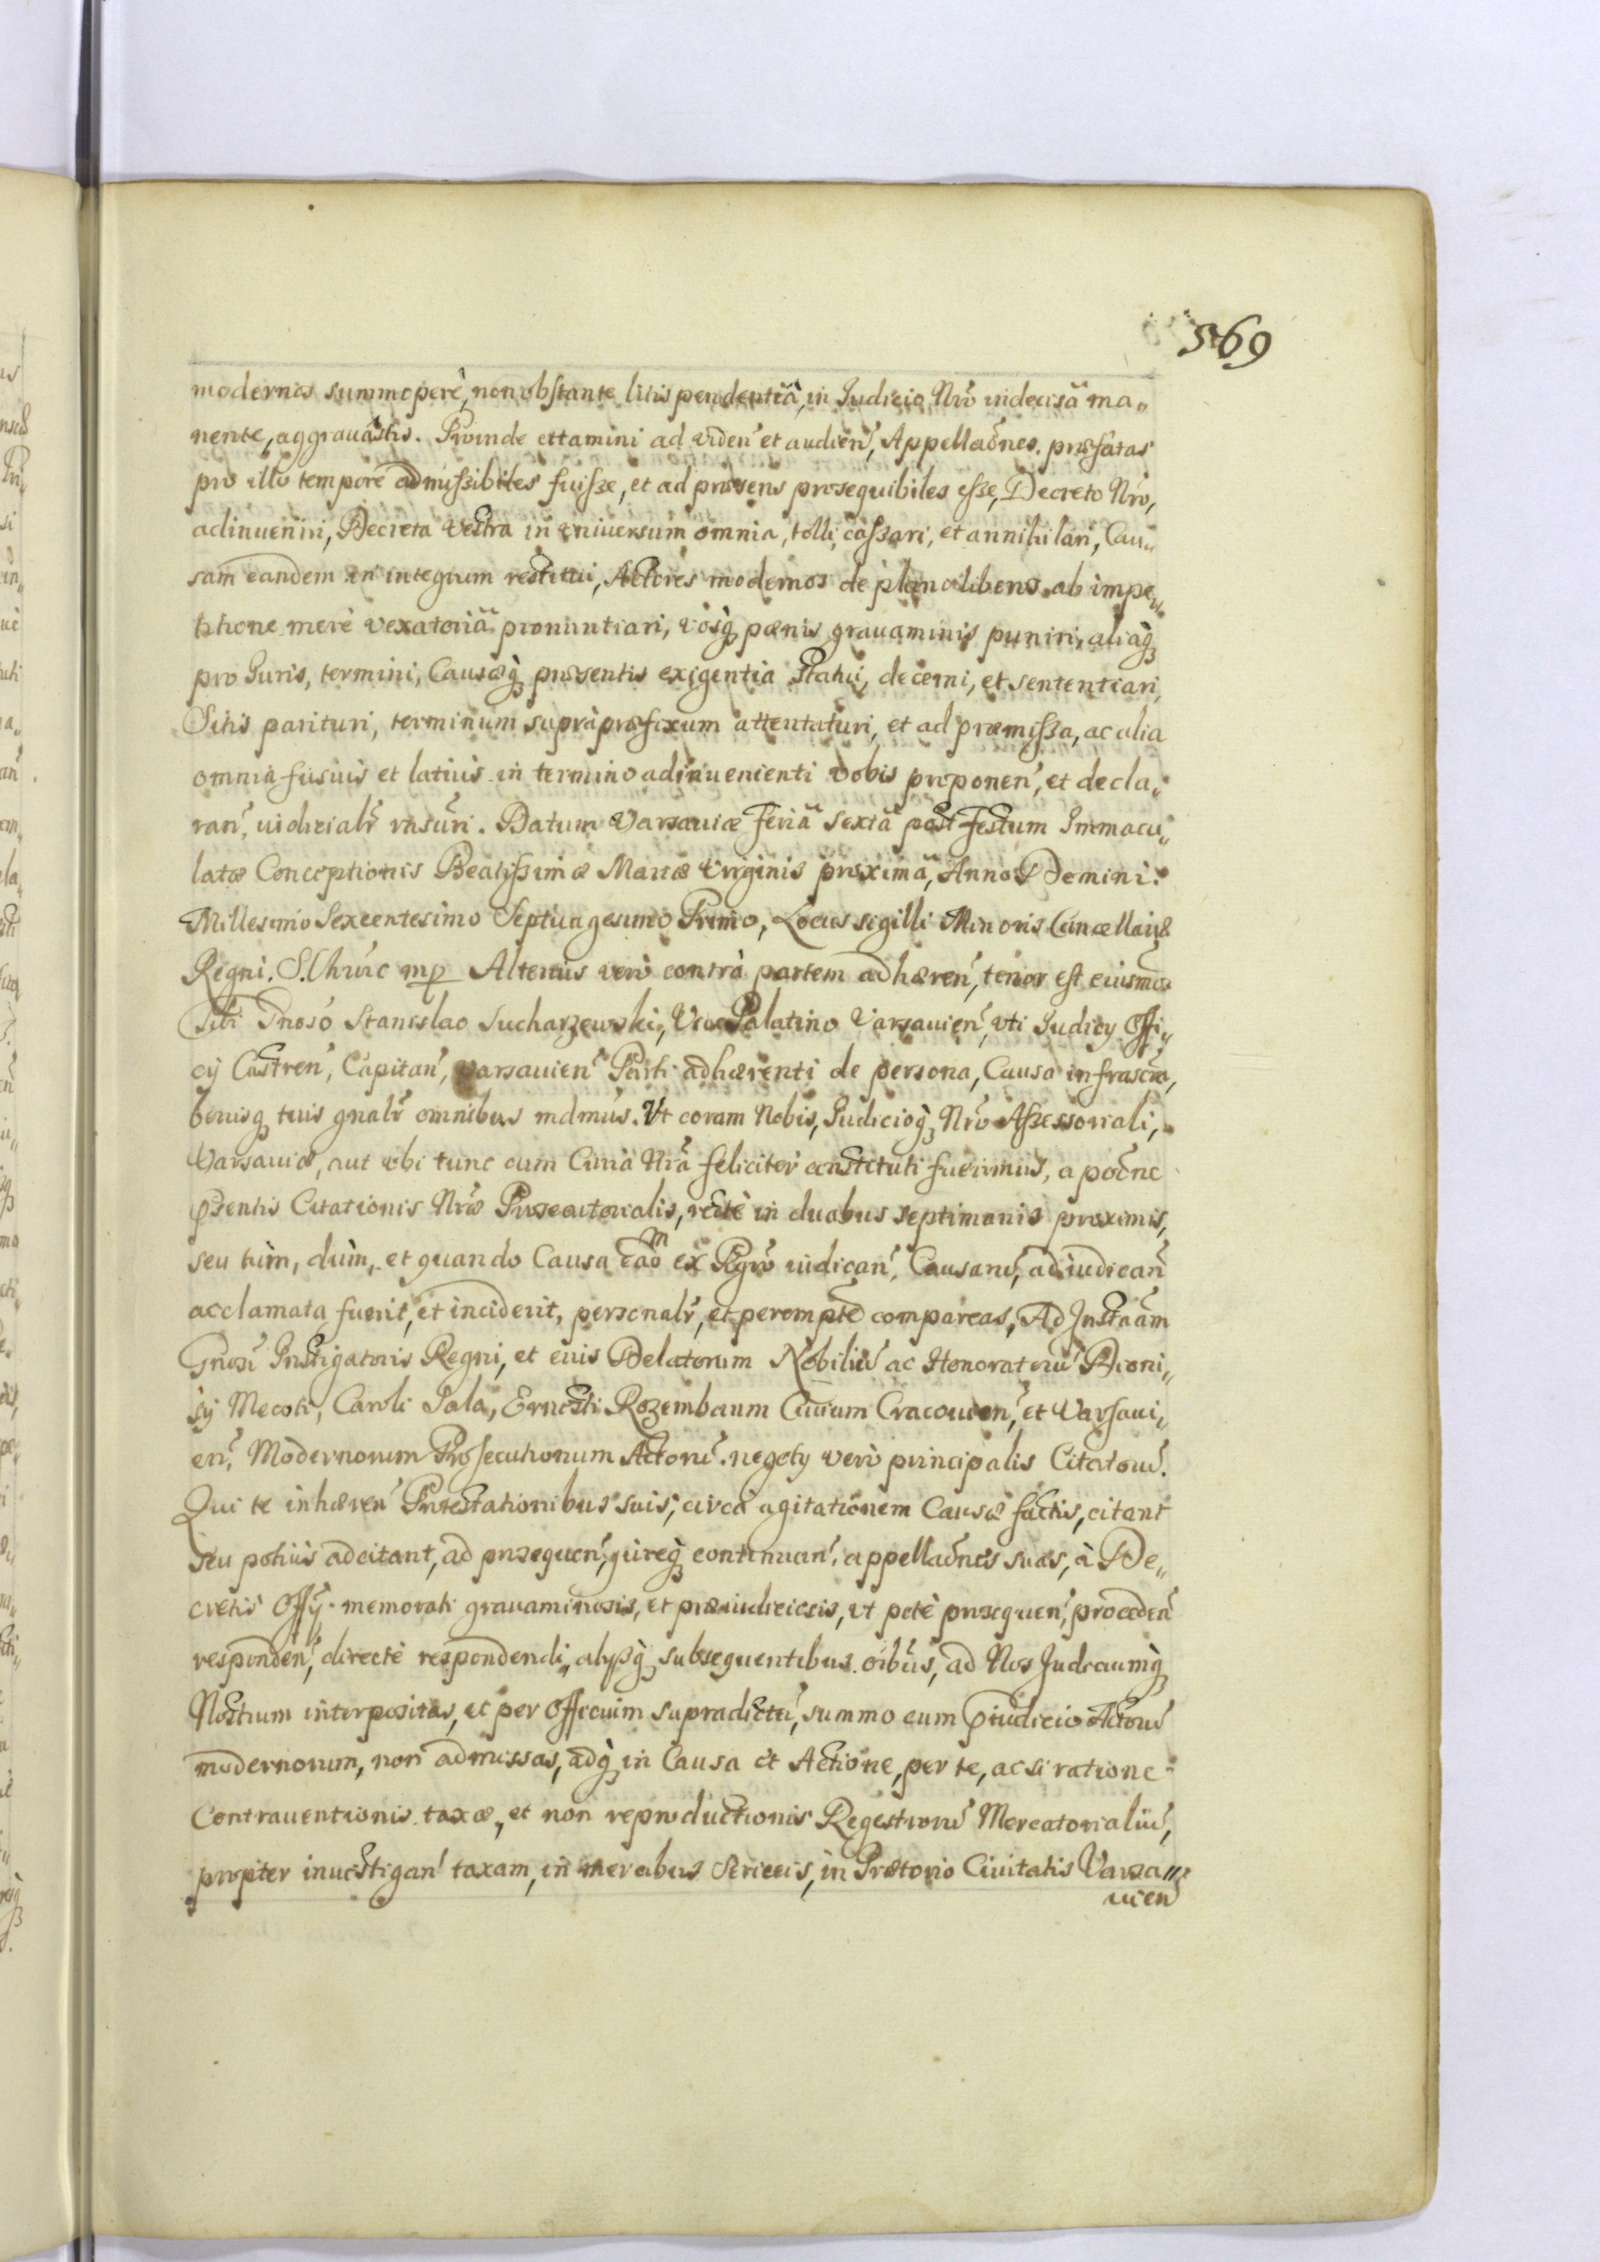 569
modernos summoperè, non obstante litis pendentiâ, in Judicio Nrō indecisâ ma„
nente, aggrauâstis. Proinde cittamini ad viden̄ et audien̄, Appellaōnes. præfatas
pro illo tempore admissibiles fuisse, et ad præsens prosequibiles esse, Decreto Nrō,
adinueniri, Decreta Vestra in vniuersum omnia, tolli, cassari, et annihilari, Cau„
sam eandem in integrum restitui, Actores modernos de plano liberos ab impe„
titione merè vexatoriâ pronuntiari, vosq̃ pœnis grauaminis puniri, aliaq̃
pro Juris, termini, Causæq̃ præsentis exigentia Statui, decerni, et sententiari,
Sitis parituri, terminum suprà præfixum attentaturi, et ad præmissa, ac alia
omnia fusius et latius in termino adinuenienti vobis proponen̄, et decla„
ran̄, iudicialr̄ rn̄suri. Datum Varsauiæ Feriâ Sextâ post Festum Immacu„
latæ Conceptionis Beatissimæ Mariæ Virginis proximâ, Anno Domini.
Millesimo Sexcentesimo Septuagesimo Primo, Locus sigilli Minoris Cancellariæ
Regni. mp Alterius verò contrà partem adhæren̄, tenor est eiusmōi
Tibi Gnoso Stanislao Sucharzewski, Vice Palatino Varsauien̄, vti Judicy Offi„
cij Castren̄, Capitan̄, Varsauien̄ Parti adhærenti de persona, Causa infrascrā,
bonisq̃ tuis gnalr̄ omnibus mdmus. Vt coram Nobis, Judicioq̃ Nrō Assessoriali,
Varsauiæ, aut vbi tunc cum Curia Nrā feliciter constituti fuerimus, a poōne
pr̄sentis Citationis Nrǣ Prosecutorialis, rectè in duabus septimanis proximis,
seu tùm, dùm, et quando Causa ex Rgrō iudican̄, Causarū, adiudican̄
acclamata fuerit, et inciderit, personalr̄, et peremptē compareas, Ad Instaām
Gnosi Instigatoris Regni, et eius Delatorum Nobiliū ac Honoratorū Dioni„
sÿ Mecoti, Caroli Sala, Ernesti Rozembaum Ciuium Cracouien̄, et Varsaui„
en̄, Modernorum Prosecutionum Actorū, negoty verò principalis Citatorū.
Qui te inhæren̄ Protestationibus suis, circà agitationem Causæ factis, citant
seu potius adcitant, ad prosequen̄, jureq̃ continuan̄, appellaōnes suas, à De„
cretis Offÿ memorati grauaminosis, et præiudiciosis, vt potè prosequen̄, proceden̄
responden̄, directè respondendi, alysq̃ subsequentibus. oībus, ad Nos Judiciumq̃
Nostrum interpositas, et per Officium supradictū, summo cum pr̄iudicio Actorū
modernorum, non admissas, adq̃ in Causa et Actione, per te, ac si ratione
Contrauentionis taxæ, et non reproductionis Regestrorū Mercatorialiū,
propter inuestigan̄ taxam, in mercibus Sericeis, in Prætorio Ciuitatis Varsa„
uien̄